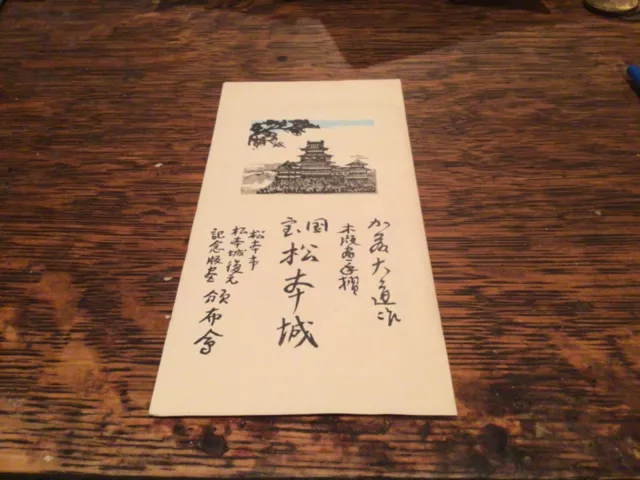 加藤大道作
木版画手摺
国宝松本城
松本市
松本城復元
記念版画頒布会